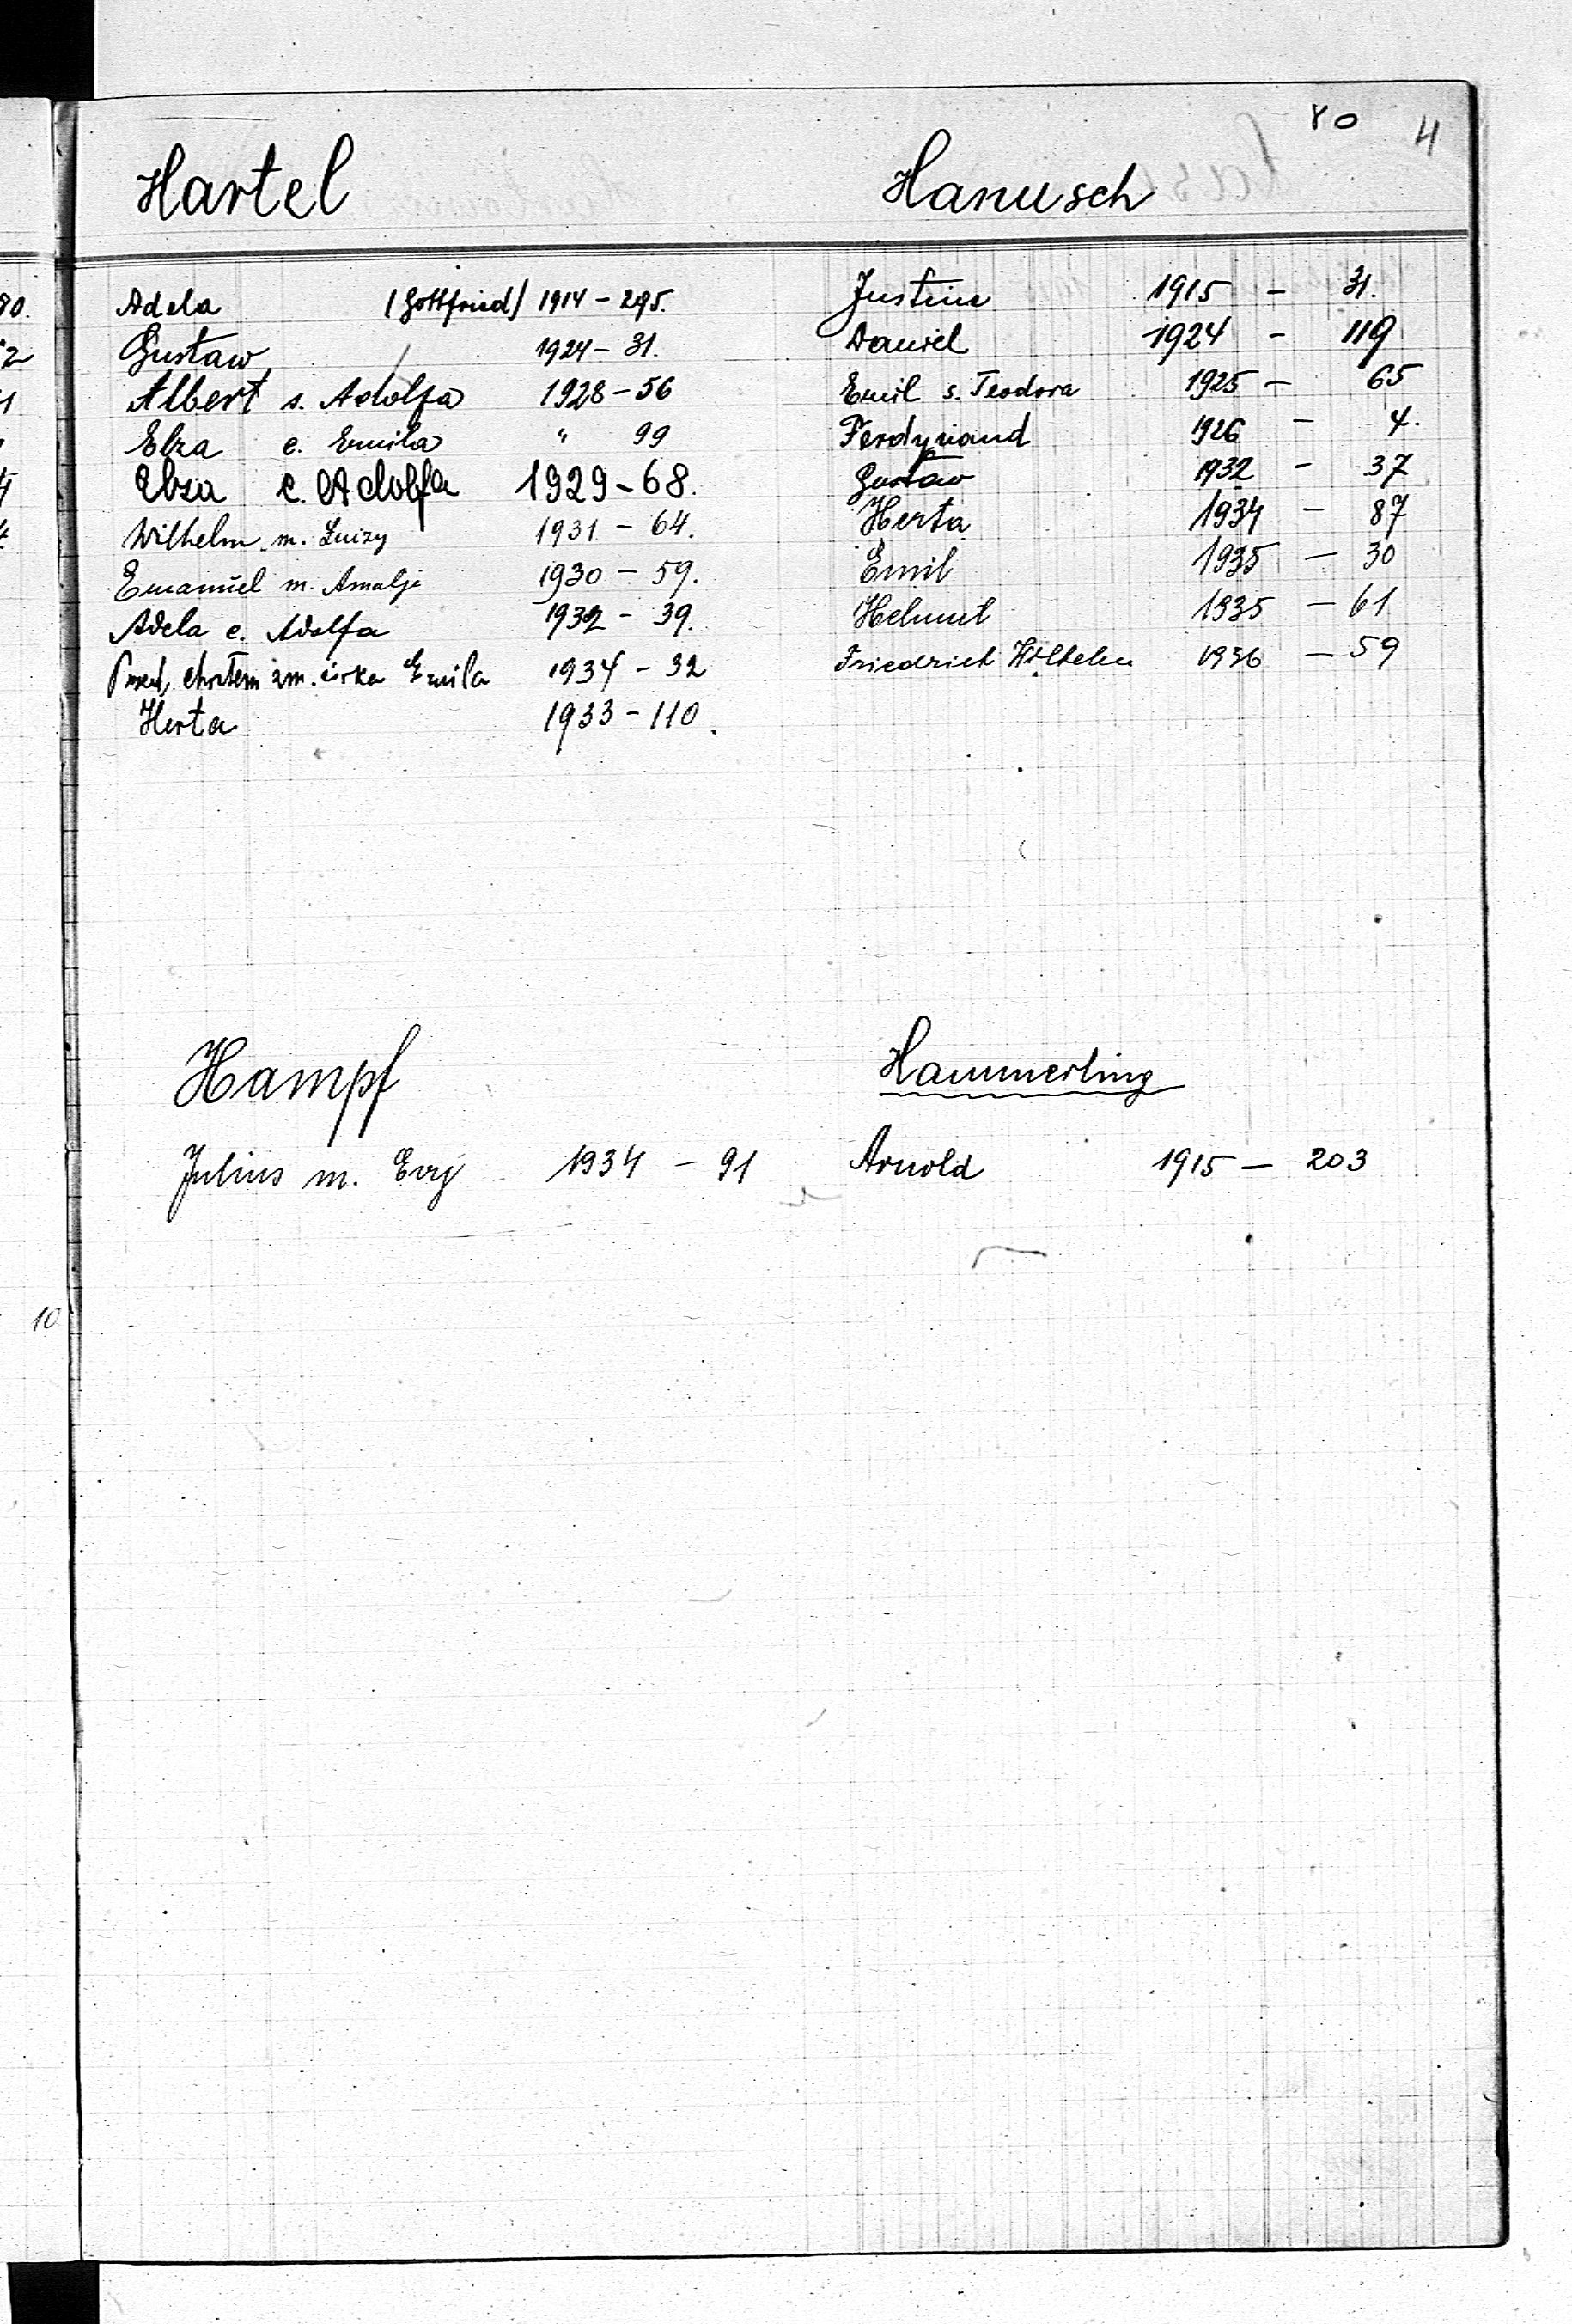 80 4
Hartel
Adela /Gottfried/ 1914 - 295.
Gustaw 1924 - 31.
Albert s. Adolfa 1928 - 56
Elza c. Emila " 99
Elza c. Adolfa 1929 - 68.
Wilhelm m. Luizy 1931 - 64.
Emanuel m. Amalji 1930 - 59.
Adela c. Adolfa 1932 - 39.
Przed chrztem zm. córka Emila 1934 - 32
Herta 1933 - 110.
Hanusch
Justine 1915 - 31.
Daniel 1924 - 119
Emil s. Teodora 1925 - 65
Ferdynand 1926 - 4.
Gustaw 1932 - 37
Herta 1934 - 87
Emil 1935 - 30
Helmut 1935 - 61
Friedrich Wilhelm 1936 - 59
Hampf
Julius m. Evy 1934 - 91
Hammerling
Arnold 1915 - 203
90.
2
1
4
10